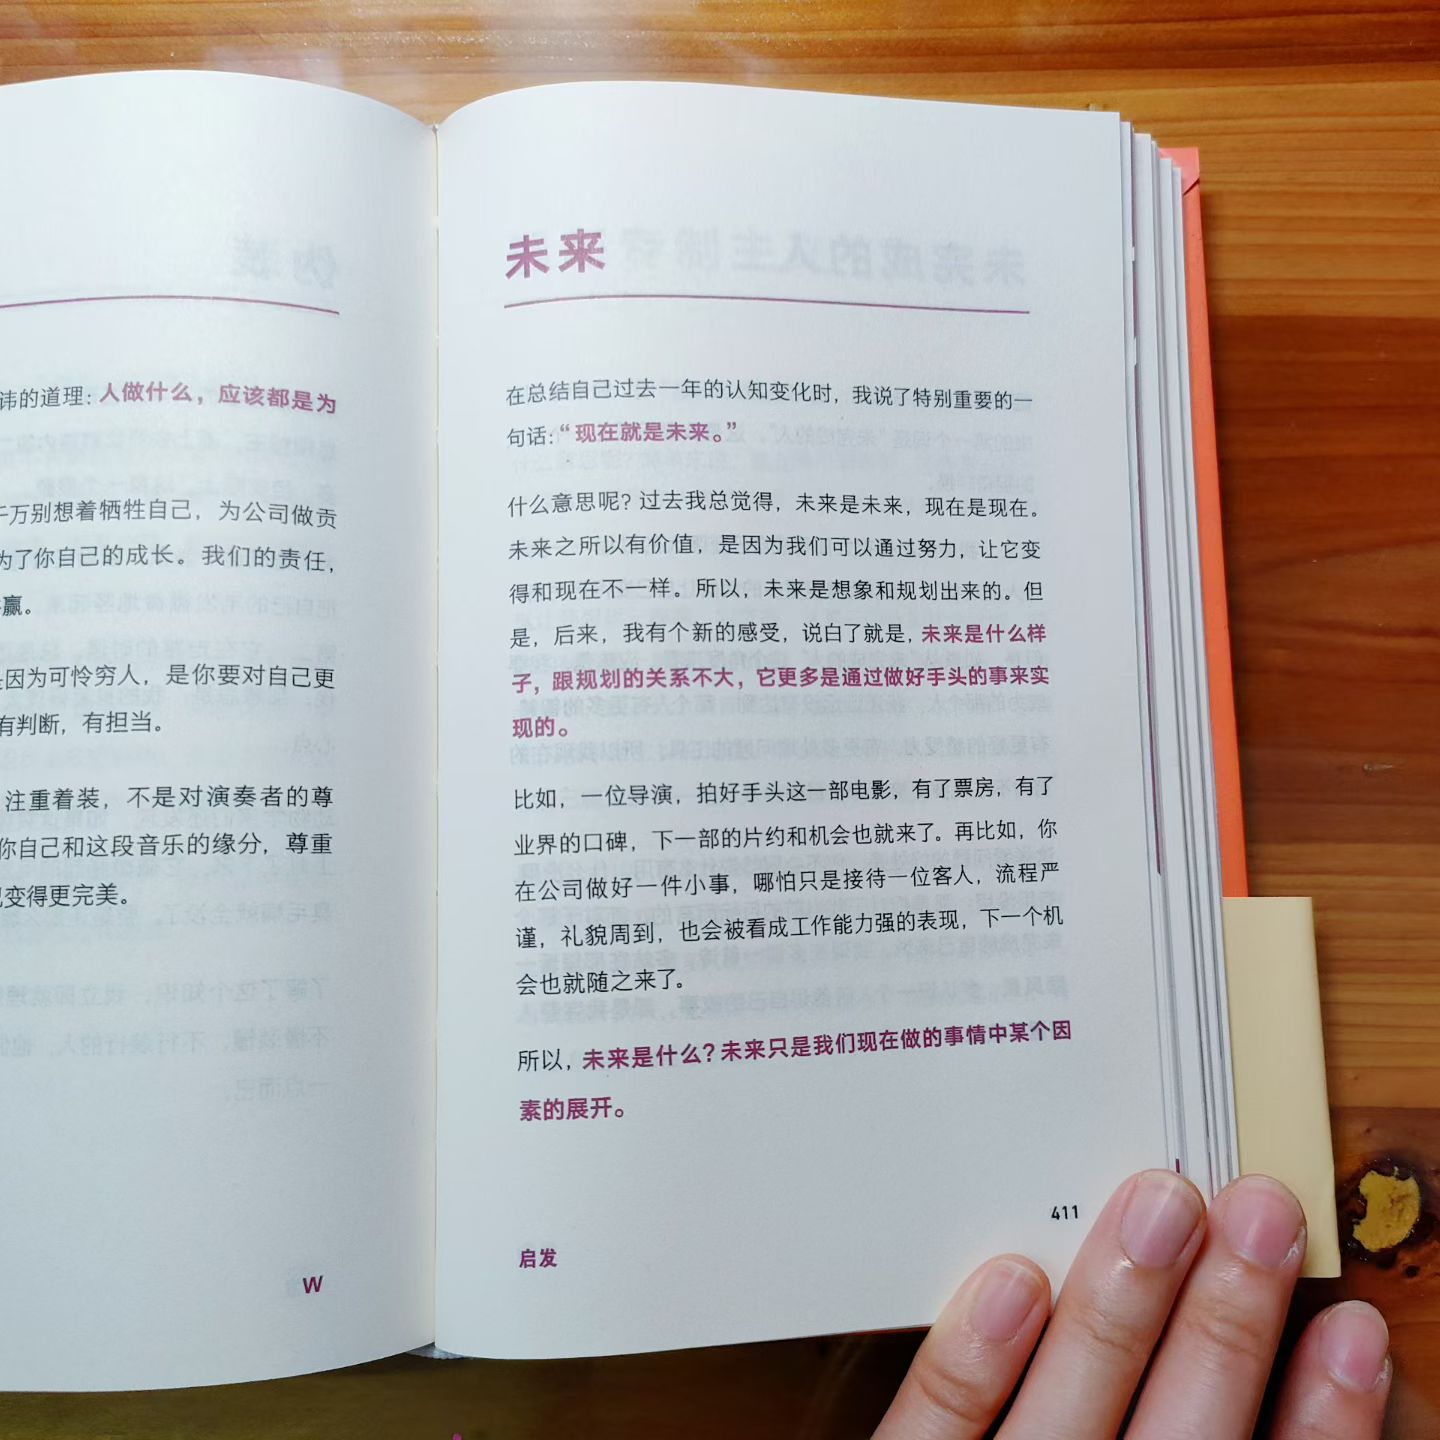 讳的道理：人做什么，应该都是为
千万别想着牺牲自己，为公司做贡
为了你自己的成长。我们的责任，
赢。
是因为可怜穷人，是你要对自己更
有判断，有担当。
注重着装，不是对演奏者的尊
你自己和这段音乐的缘分，尊重
变得更完美。
W
未来
在总结自己过去一年的认知变化时，我说了特别重要的一
句话：“现在就是未来。”
什么意思呢？过去我总觉得，未来是未来，现在是现在。
未来之所以有价值，是因为我们可以通过努力，让它变
得和现在不一样。所以，未来是想象和规划出来的。但
是，后来，我有个新的感受，说白了就是，未来是什么样
子，跟规划的关系不大，它更多是通过做好手头的事来实
现的。
比如，一位导演，拍好手头这一部电影，有了票房，有了
业界的口碑，下一部的片约和机会也就来了。再比如，你
在公司做好一件小事，哪怕只是接待一位客人，流程严
谨，礼貌周到，也会被看成工作能力强的表现，下一个机
会也就随之来了。
所以，未来是什么？未来只是我们现在做的事情中某个因
素的展开。
411
启发